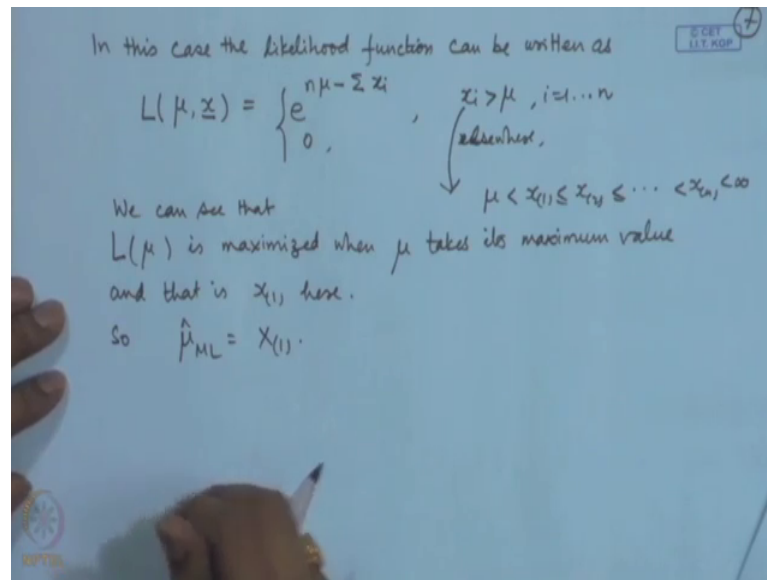 In this case the likelihood function can be written as
© CET
I.I.T. KGP
7
L(μ, x) = { e^{nμ - Σ xi} , xi > μ , i=1...n
0 , elsewhere,
μ < x(1) ≤ x(2) ≤ ... < x(n) < ∞
We can see that
L(μ) is maximized when μ takes its maximum value
and that is x(1) here.
So μ̂ML = X(1).
NPTEL